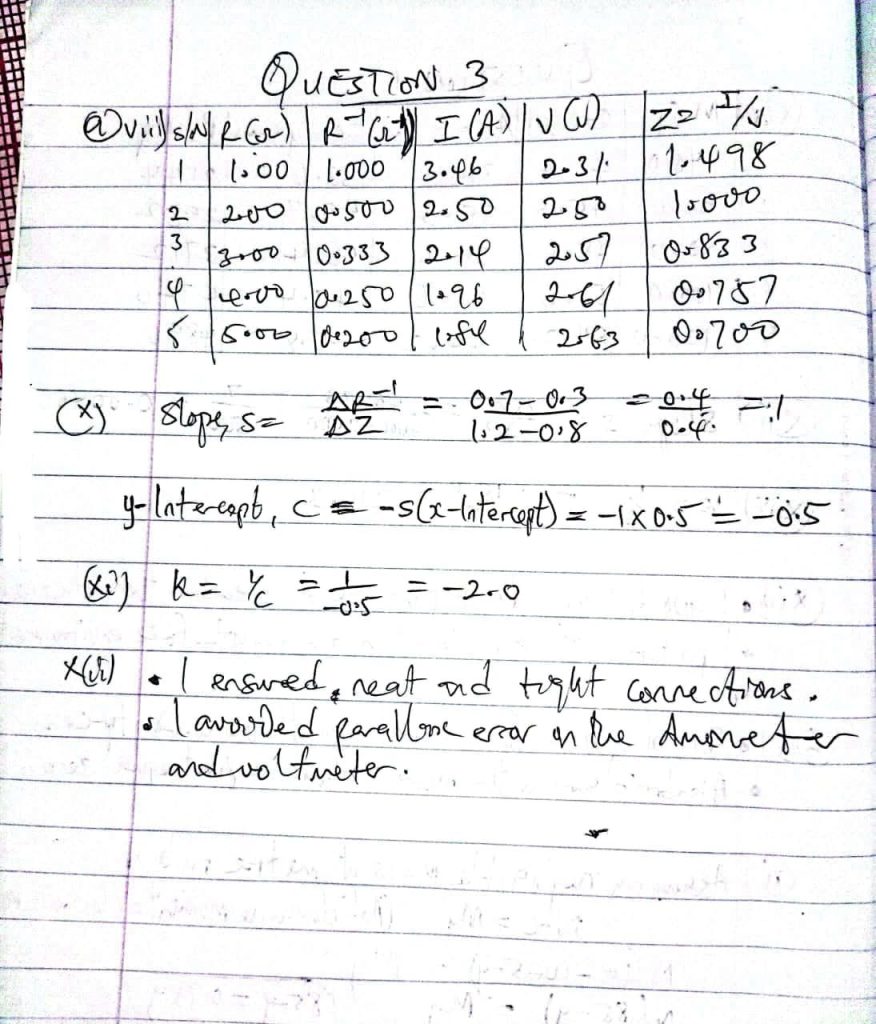 QUESTION 3
(a)viii) s/N R(Ω) R⁻¹(Ω⁻¹) I(A) V(V) Z= I/V
1 1.00 1.000 3.46 2.31 1.498
2 2.00 0.500 2.50 2.50 1.000
3 3.00 0.333 2.14 2.57 0.833
4 4.00 0.250 1.96 2.61 0.757
5 5.00 0.200 1.84 2.63 0.700
(x) Slope, s= ΔR⁻¹/ΔZ = 0.7-0.3/1.2-0.8 = 0.4/0.4 = 1
y-Intercept, c = -s(x-Intercept) = -1x0.5 = -0.5
(xi) k = 1/c = 1/-0.5 = -2.0
x(ii) • I ensured neat and tight connections.
• I avoided parallax error on the Ammeter
and voltmeter.